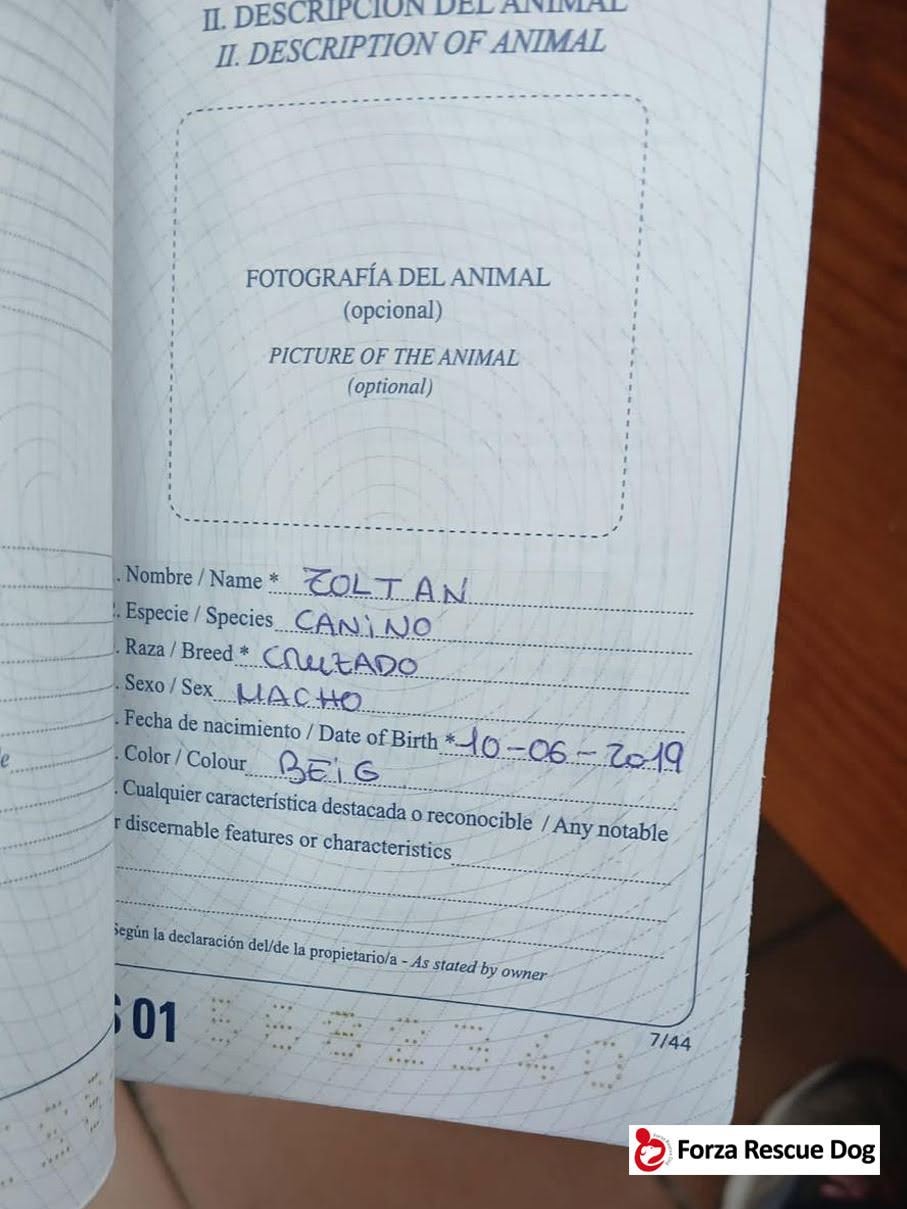 II. DESCRIPCIÓN DEL ANIMAL
II. DESCRIPTION OF ANIMAL
FOTOGRAFÍA DEL ANIMAL
(opcional)
PICTURE OF THE ANIMAL
(optional)
. Nombre / Name * ZOLTAN
. Especie / Species CANINO
. Raza / Breed * CRUZADO
. Sexo / Sex MACHO
. Fecha de nacimiento / Date of Birth * 10-06-2019
. Color / Colour BEIG
. Cualquier característica destacada o reconocible / Any notable
r discernable features or characteristics
Según la declaración del/de la propietario/a - As stated by owner
S 01 5682340
7/44
Forza Rescue Dog